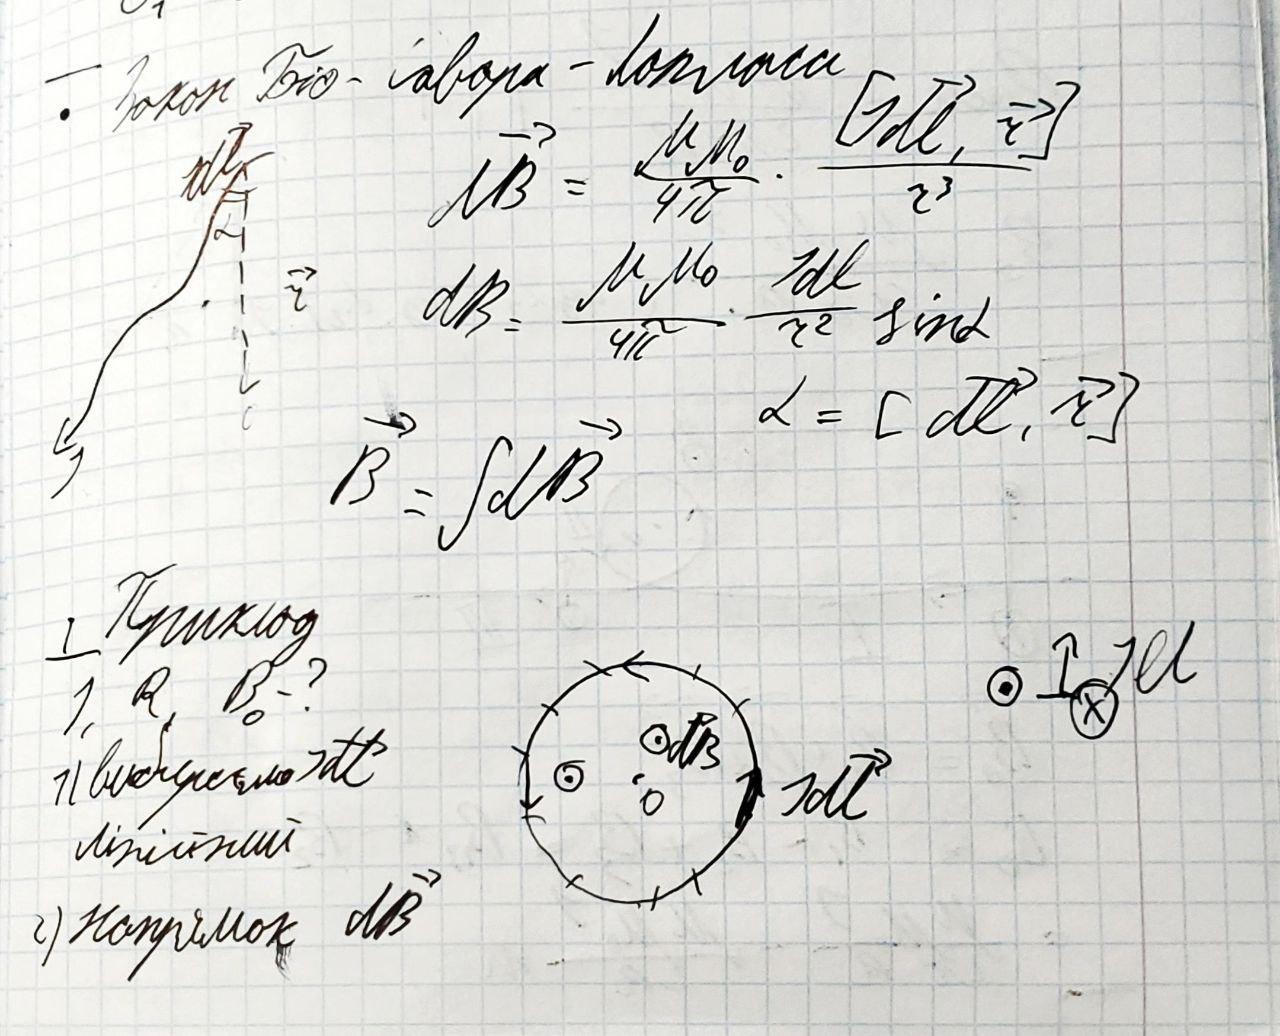 Закон Біо-Савара-Лапласа
dl
α
r⃗
dB⃗ = μμ₀/4π · [Idl⃗, r⃗]/r³
dB = μμ₀/4π · Idl/r² sinα
α = [dl⃗, r⃗]
I
B⃗ = ∫dB⃗
1 Приклад
I, R, B₀ - ?
1) вибираємо Idl⃗
лінійний
dB⃗
O
Idl⃗
Idl
2) Напрямок dB⃗